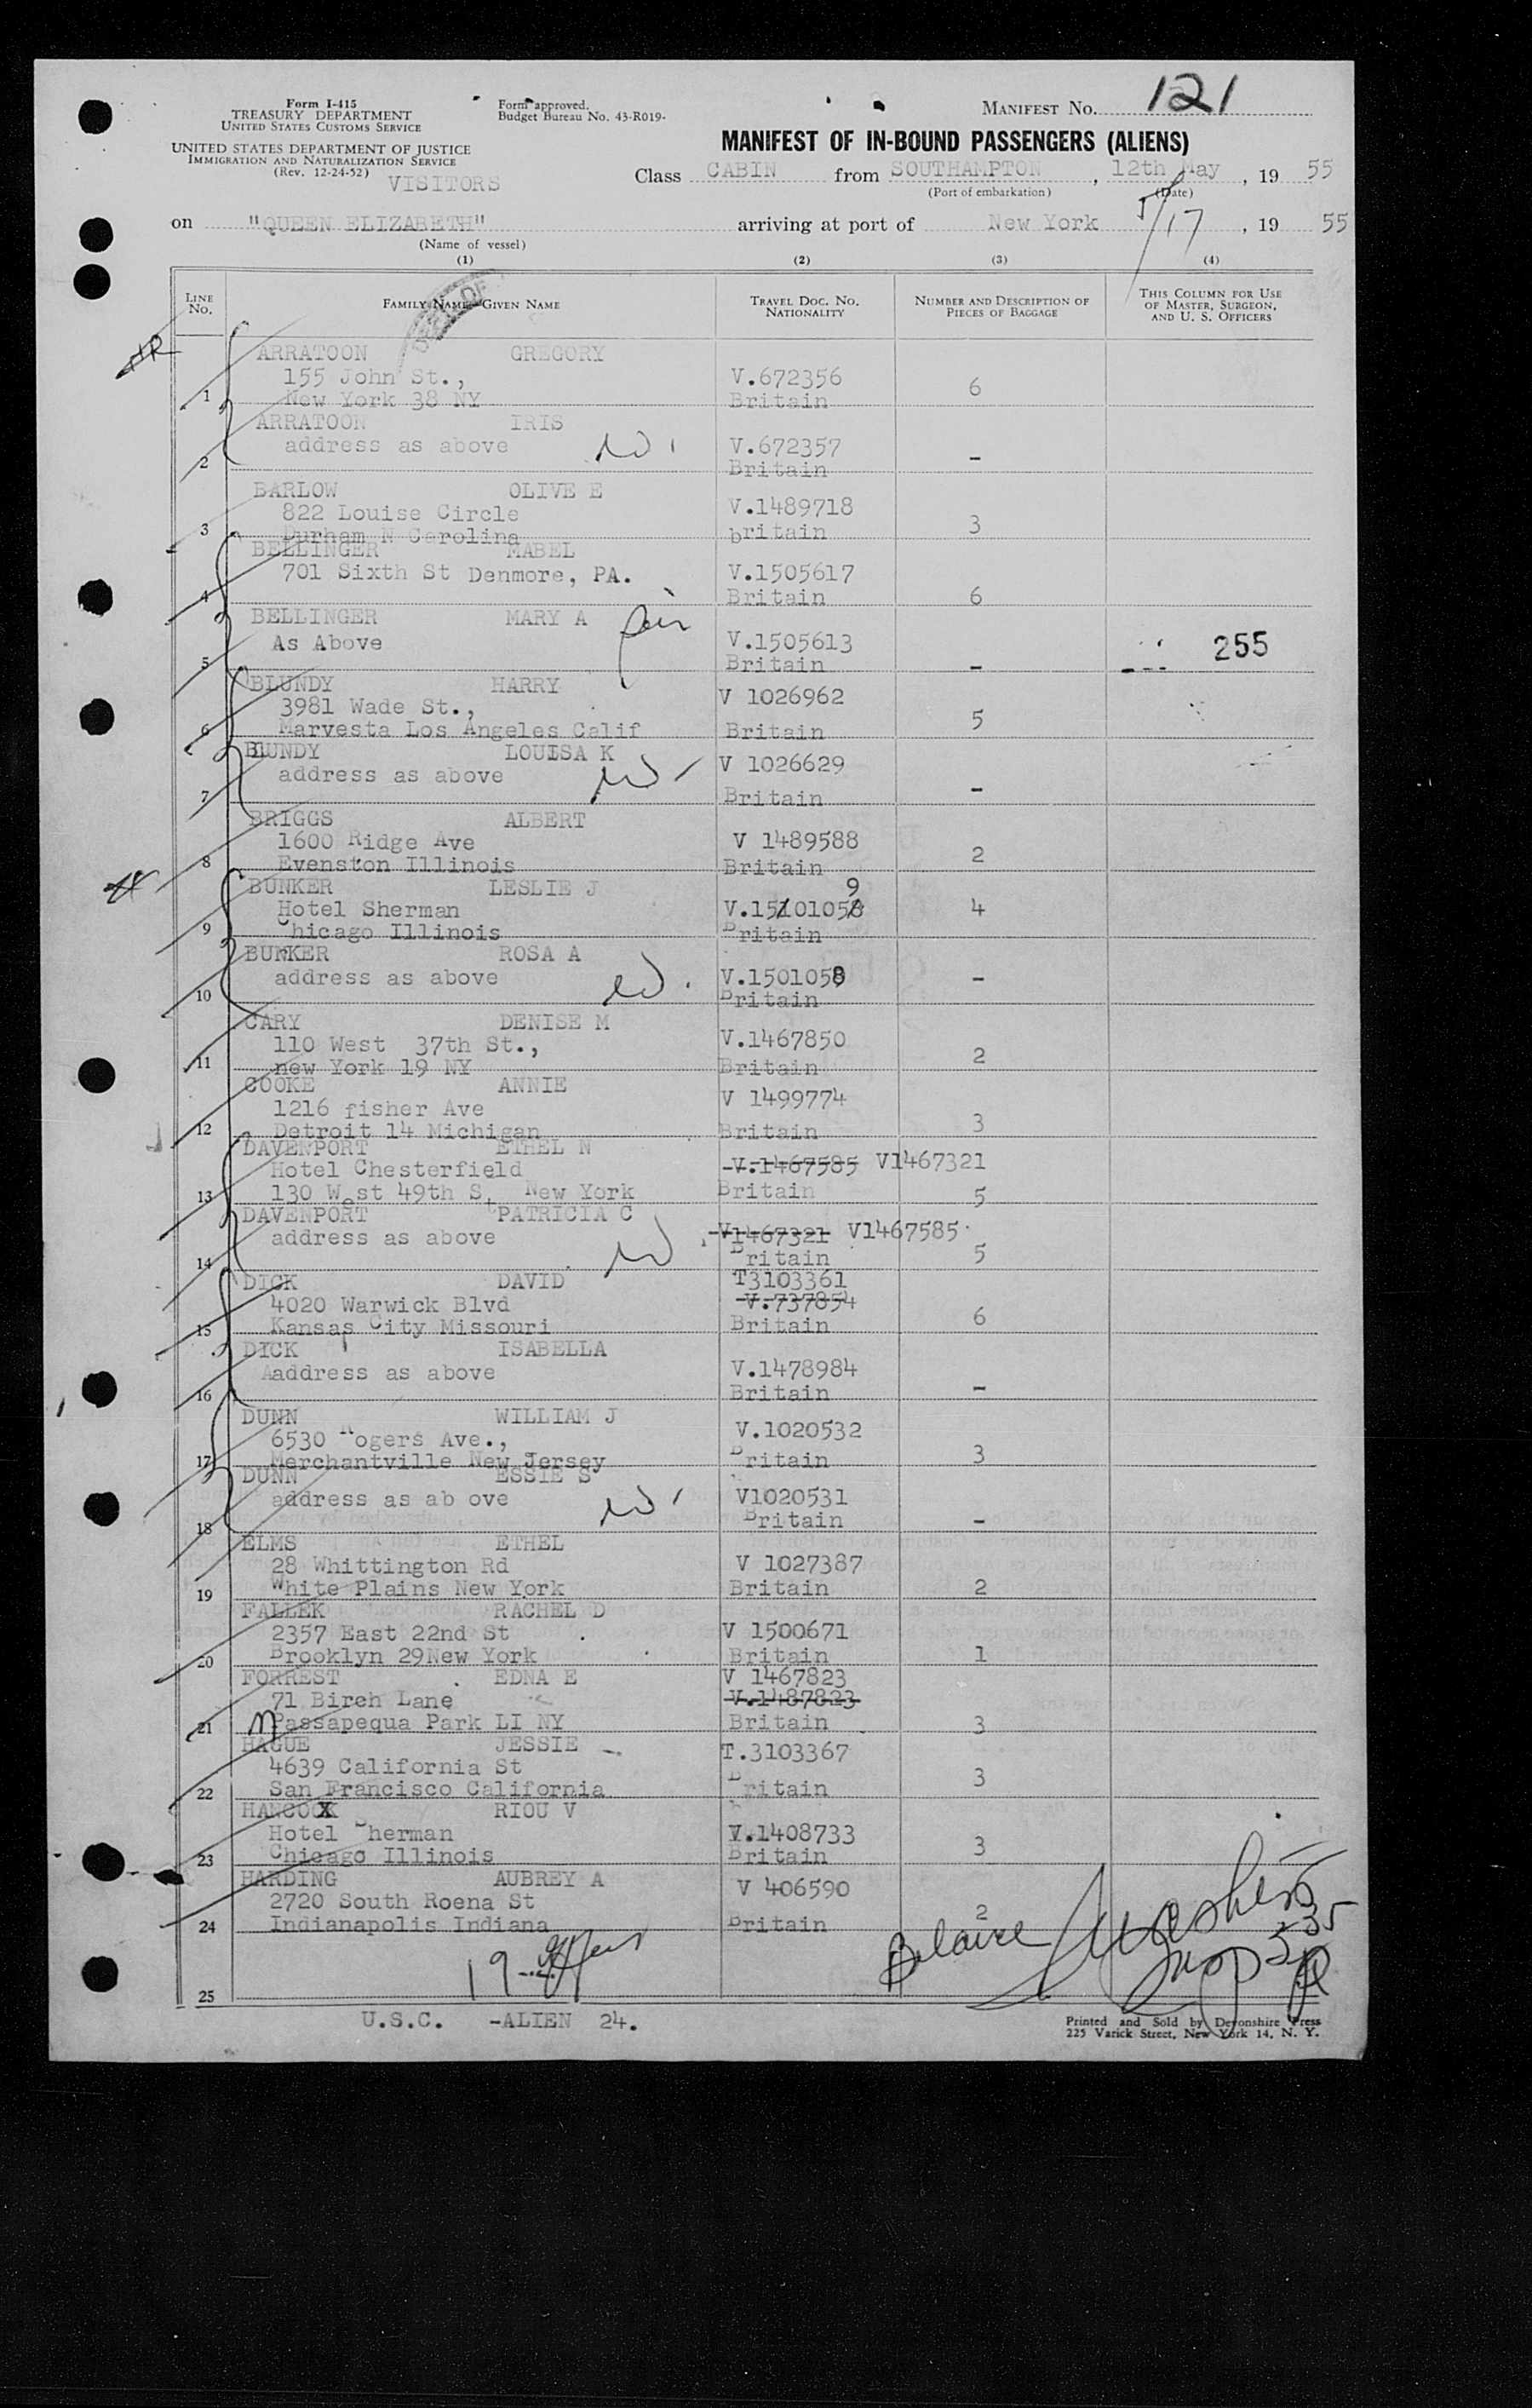 Form I-415
TREASURY DEPARTMENT
UNITED STATES CUSTOMS SERVICE
UNITED STATES DEPARTMENT OF JUSTICE
IMMIGRATION AND NATURALIZATION SERVICE
(Rev. 12-24-52)
VISITORS
Form approved.
Budget Bureau No. 43-R019-
MANIFEST No. 121
MANIFEST OF IN-BOUND PASSENGERS (ALIENS)
Class CABIN from SOUTHAMPTON, 12th May, 19 55
(Port of embarkation) (Date)
on "QUEEN ELIZABETH" arriving at port of New York 5/17, 19 55
(Name of vessel)
(1) (2) (3) (4)
LINE No. FAMILY NAME—GIVEN NAME TRAVEL DOC. No. NATIONALITY NUMBER AND DESCRIPTION OF PIECES OF BAGGAGE THIS COLUMN FOR USE OF MASTER, SURGEON, AND U. S. OFFICERS
ARRATOON GREGORY
155 John St., V.672356 6
1 New York 38 NY Britain
ARRATOON IRIS
address as above V.672357 -
2 Britain
BARLOW OLIVE E
822 Louise Circle V.1489718
3 Durham N Carolina britain 3
BELLINGER MABEL
701 Sixth St Denmore, PA. V.1505617
4 Britain 6
BELLINGER MARY A
As Above V.1505613 255
5 Britain -
BLUNDY HARRY V 1026962
3981 Wade St., 5
6 Marvesta Los Angeles Calif Britain
BLUNDY LOUISA K V 1026629
address as above -
7 Britain
BRIGGS ALBERT
1600 Ridge Ave V 1489588 2
8 Evenston Illinois Britain
BUNKER LESLIE J 9
Hotel Sherman V.15101058 4
9 Chicago Illinois Britain
BUNKER ROSA A
address as above V.1501058 -
10 Britain
CARY DENISE M
110 West 37th St., V.1467850 2
11 new York 19 NY Britain
COOKE ANNIE
1216 fisher Ave V 1499774 3
12 Detroit 14 Michigan Britain
DAVENPORT ETHEL N
Hotel Chesterfield V.1467585 V1467321
13 130 West 49th St New York Britain 5
DAVENPORT PATRICIA C
address as above V1467321 V1467585
14 Britain 5
DICK DAVID T3103361
4020 Warwick Blvd V.737854
15 Kansas City Missouri Britain 6
DICK ISABELLA
Aaddress as above V.1478984
16 Britain -
DUNN WILLIAM J
6530 Rogers Ave., V.1020532
17 Merchantville New Jersey Britain 3
DUNN ESSIE S
address as ab ove V1020531
18 Britain -
ELMS ETHEL
28 Whittington Rd V 1027387
19 White Plains New York Britain 2
FALLEK RACHEL D
2357 East 22nd St V 1500671
20 Brooklyn 29New York Britain 1
FORREST EDNA E V 1467823
71 Birch Lane V.1487823
21 Massapequa Park LI NY Britain 3
HAGUE JESSIE T.3103367
4639 California St
22 San Francisco California Britain 3
HANCOCK RIOU V
Hotel Sherman V.1408733 3
23 Chicago Illinois Britain
HARDING AUBREY A
2720 South Roena St V 406590
24 Indianapolis Indiana Britain 2
19
25
U.S.C. -ALIEN 24.
Printed and Sold by Devonshire Press
225 Varick Street, New York 14, N. Y.